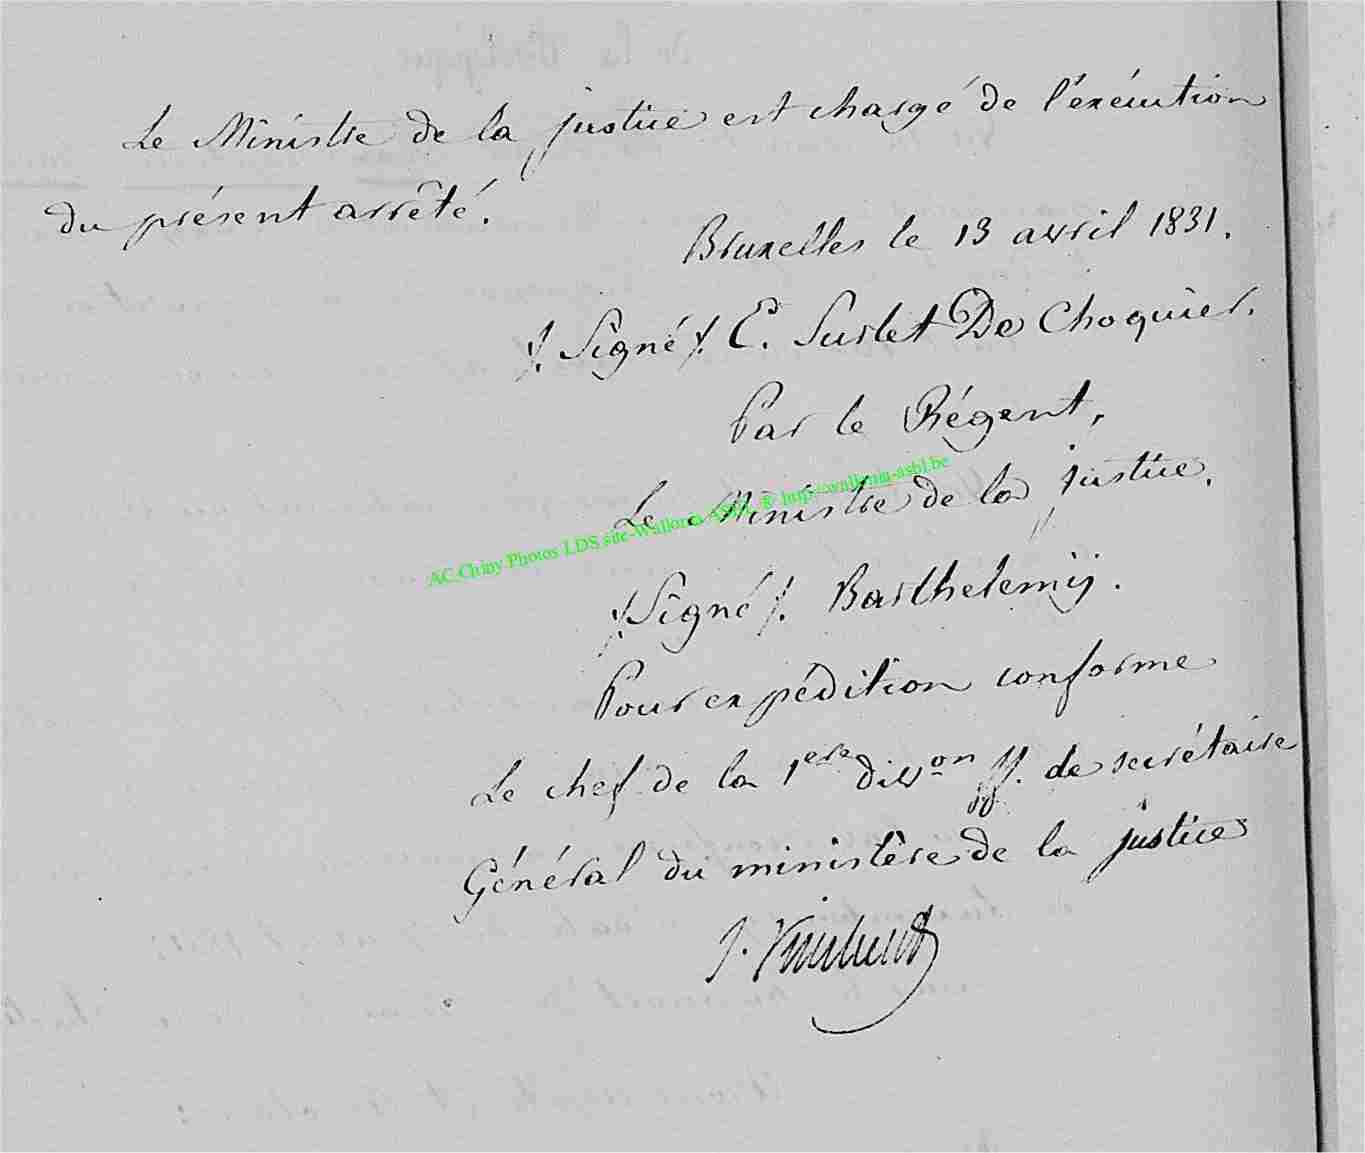 Le Ministre de la justice est chargé de l'exécution
du présent arrêté.
Bruxelles le 13 avril 1831.
/. Signé /. E. Surlet De Choquier.
Par le Régent,
Le Ministre de la justice.
AC Chiny Photos LDS site-Wallonia ASBL © http://wallonia-asbl.be
/. Signé /. Barthelemij.
Pour expédition conforme
Le chef de la 1ere divon ff. de secrétaire
Général du ministère de la justice
J.